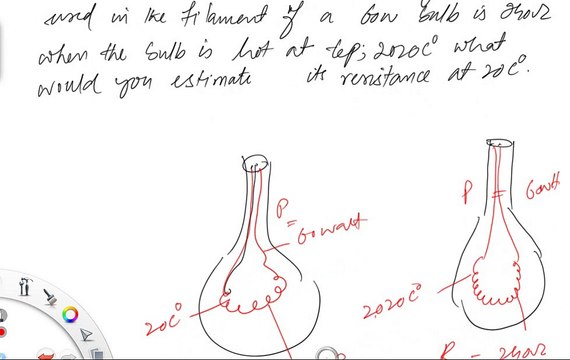 used in the filament of a 60w bulb is 240Ω
when the bulb is hot at tep; 2020C° what
would you estimate its resistance at 20C°.
P
=
60watt
P 60watt
20C°
2020C°
R = 240Ω